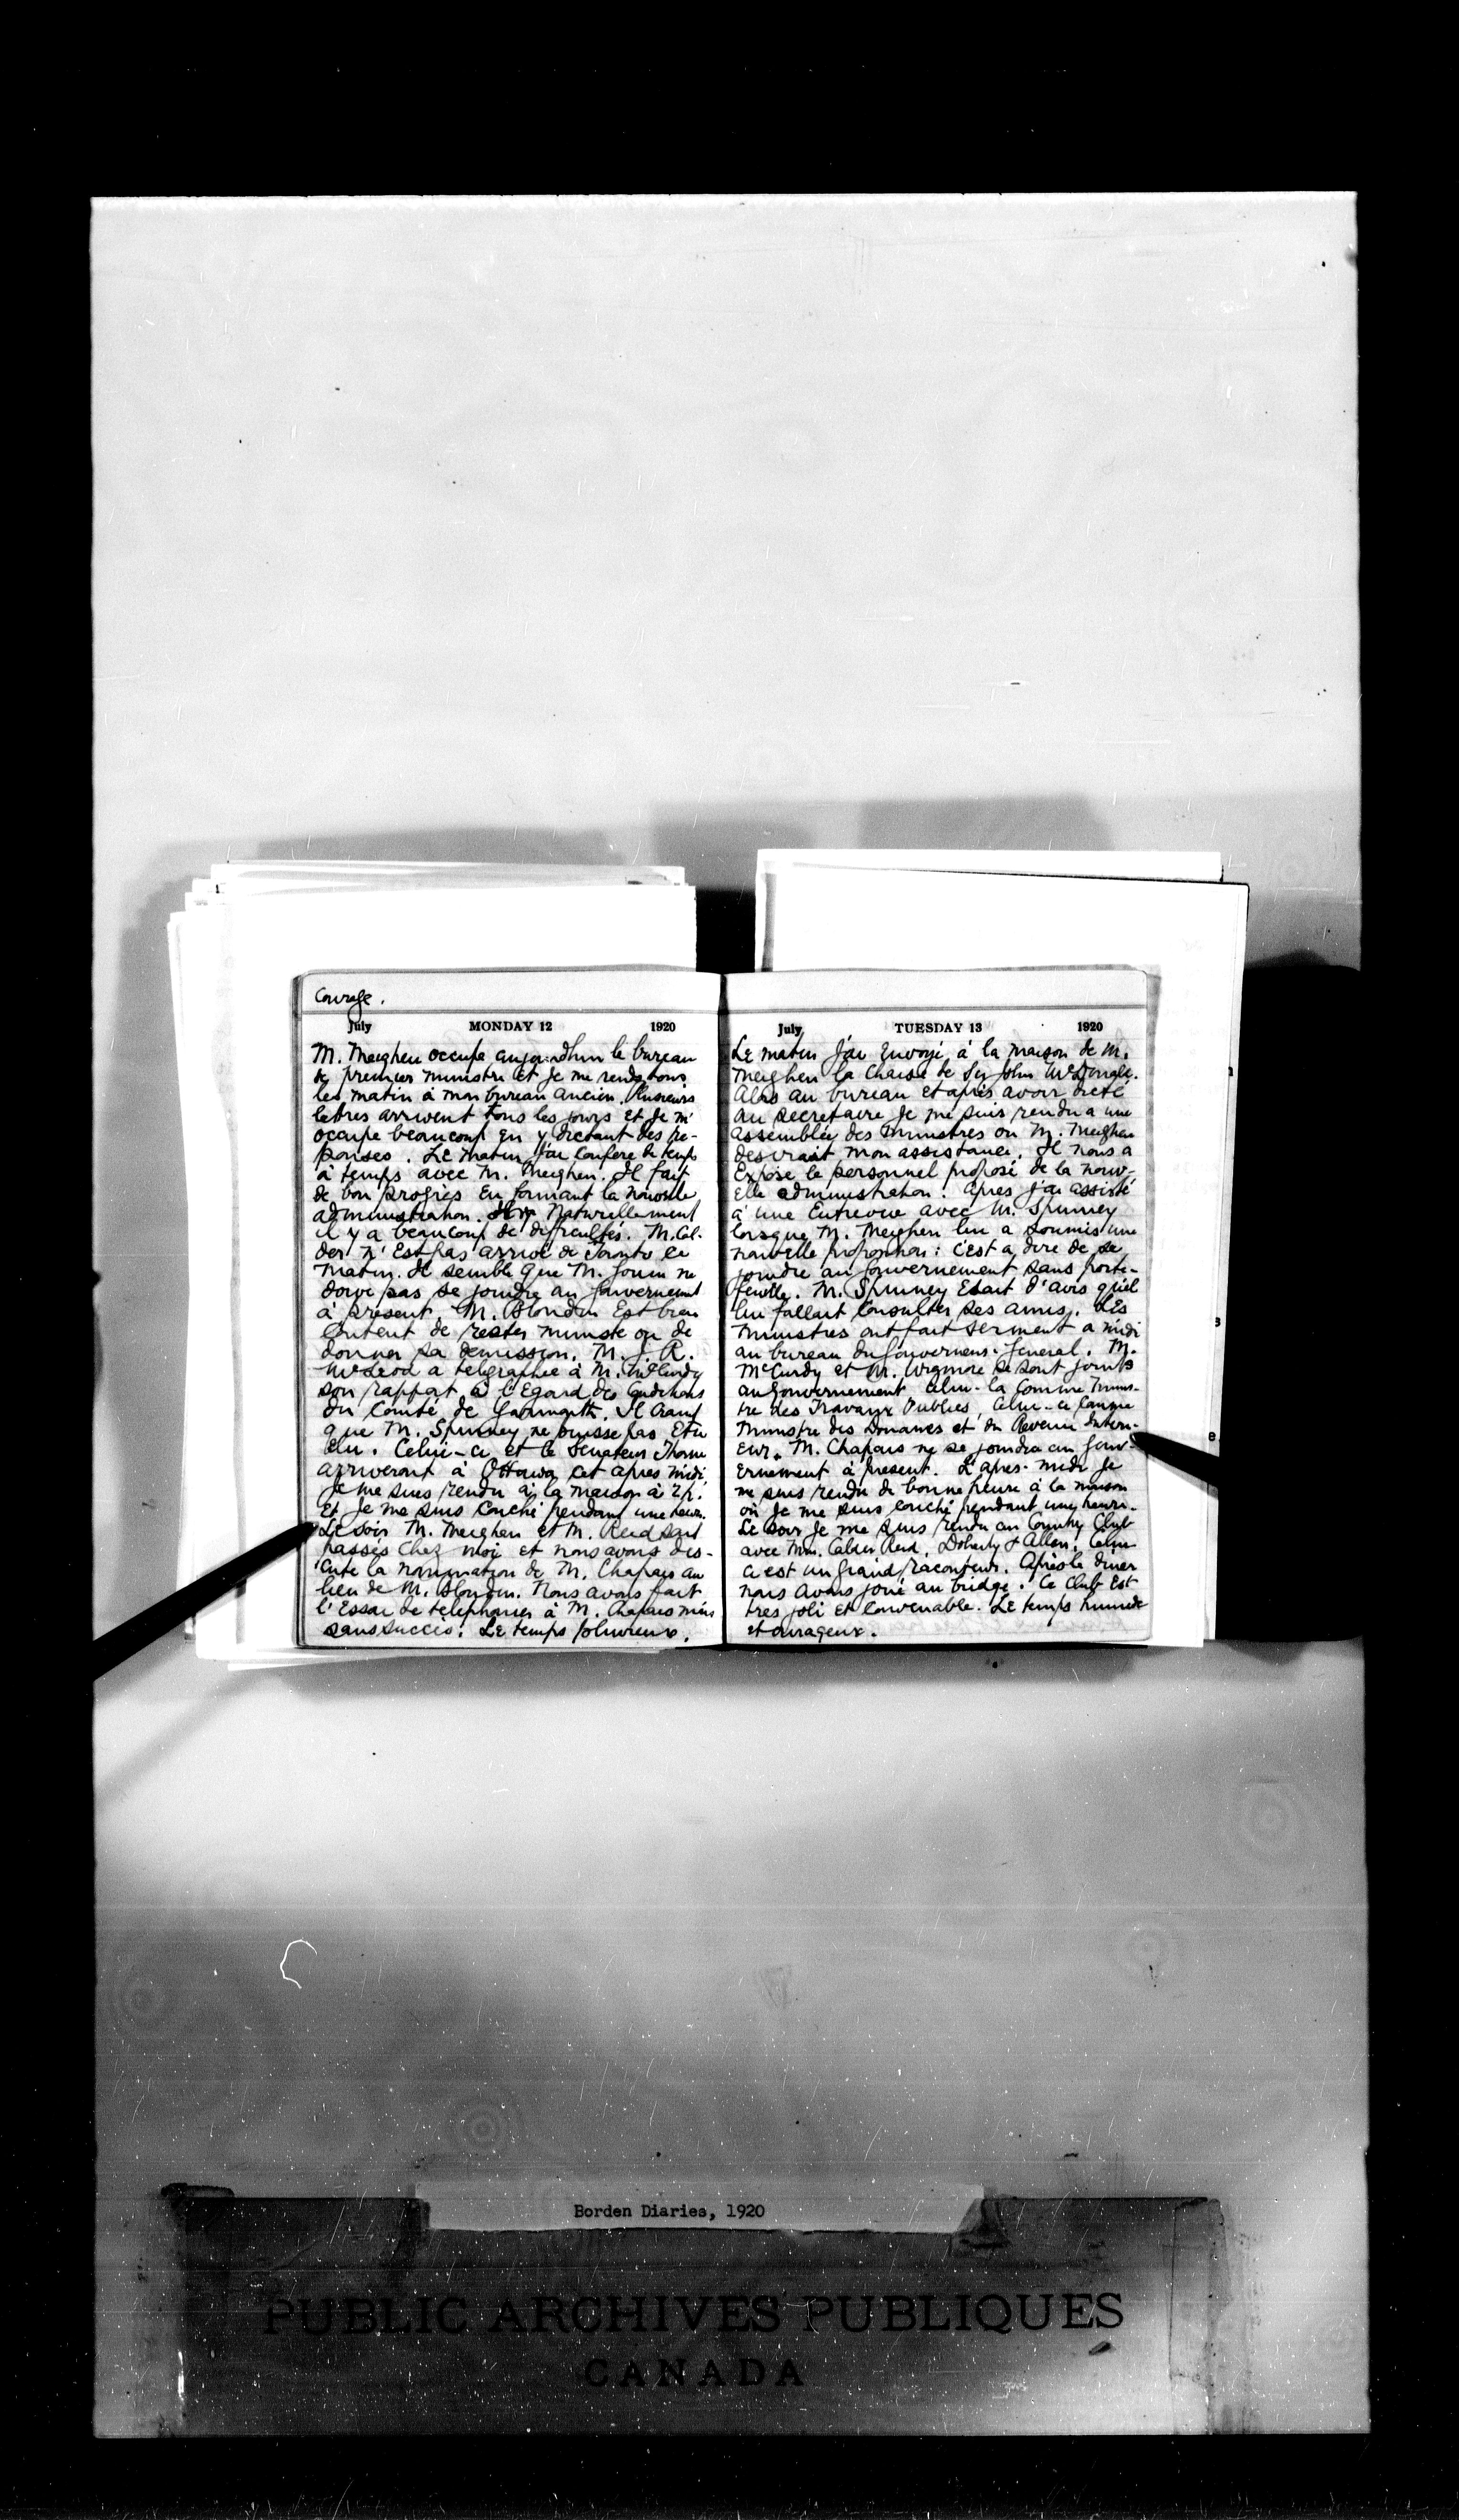 Courage.
July MONDAY 12 1920
M. Meighen occupe aujourdhui le bureau
de premier ministre et je me rends tous
les matin à mon bureau ancien. Plusieurs
lettres arrivent tous les jours et je m'
occupe beaucoup en y dictant des re-
ponses. Le matin j'ai confere de temps
à temps avec M. Meighen. Il fait
de bon progres en formant la nouvelle
administration. Naturellement
il y a beaucoup de difficultés. M. Cal-
der n'est pas arrivé de Toronto ce
matin. Il semble que M. Gouin ne
doive pas se joindre au gouvernement
à present. M. Blondin est bien
content de rester ministre ou de
donner sa demission. M. J. R.
McLeod a telegraphié à M. McCurdy
son rapport à l'egard des conditions
du Comté de Yarmouth. Il craint
que M. Spinney ne puisse pas etre
élu. Celui-ci et le Senateur Thorne
arriveront à Ottawa cet apres midi.
Je me suis rendu à la maison à 2h.
et je me suis couché pendant une heure.
Le soir M. Meighen et M. Reid sont
passés chez moi et nous avons dis-
cuté la nomination de M. Chapais au
lieu de M. Blondin. Nous avons fait
l'essai de telephoner à M. Chapais mais
sans succes. Le temps pluvieux.
July TUESDAY 13 1920
Le matin j'ai envoyé à la maison de M.
Meighen la chaise de Sir John McDonald.
Alas au bureau et après avoir dicté
au secretaire je me suis rendu a une
assemblée des ministres ou M. Meighen
desirait mon assistance. Il nous a
exposé le personnel proposé de la nouv-
elle administration. Apres j'ai assisté
à une entrevue avec M. Spinney
lorsque M. Meighen lui a soumis une
nouvelle proposition: c'est a dire de se
joindre au gouvernement sans porte-
feuille. M. Spinney etait d'avis qu'il
lui fallait consulter ses amis. Les
ministres ont fait serment a midi
au bureau du gouverneur-general. M.
McCurdy et M. Wigmore se sont joints
au gouvernement celui-la comme minis-
tre des Travaux Publics, celui-ci comme
ministre des Douanes et du Revenu Interi-
eur. M. Chapais ne se joindra au gouv-
ernement à present. L'apres-midi je
me suis rendu de bonne heure à la maison
où je me suis couché pendant une heure.
Le soir je me suis rendu au Country Club
avec Mm. Calder Reid, Doherty & Allen. Celui
ci est un grand raconteur. Après le diner
nous avons joué au bridge. Ce Club est
tres joli et convenable. Le temps humide
et orageux.
Borden Diaries, 1920
PUBLIC ARCHIVES PUBLIQUES
CANADA